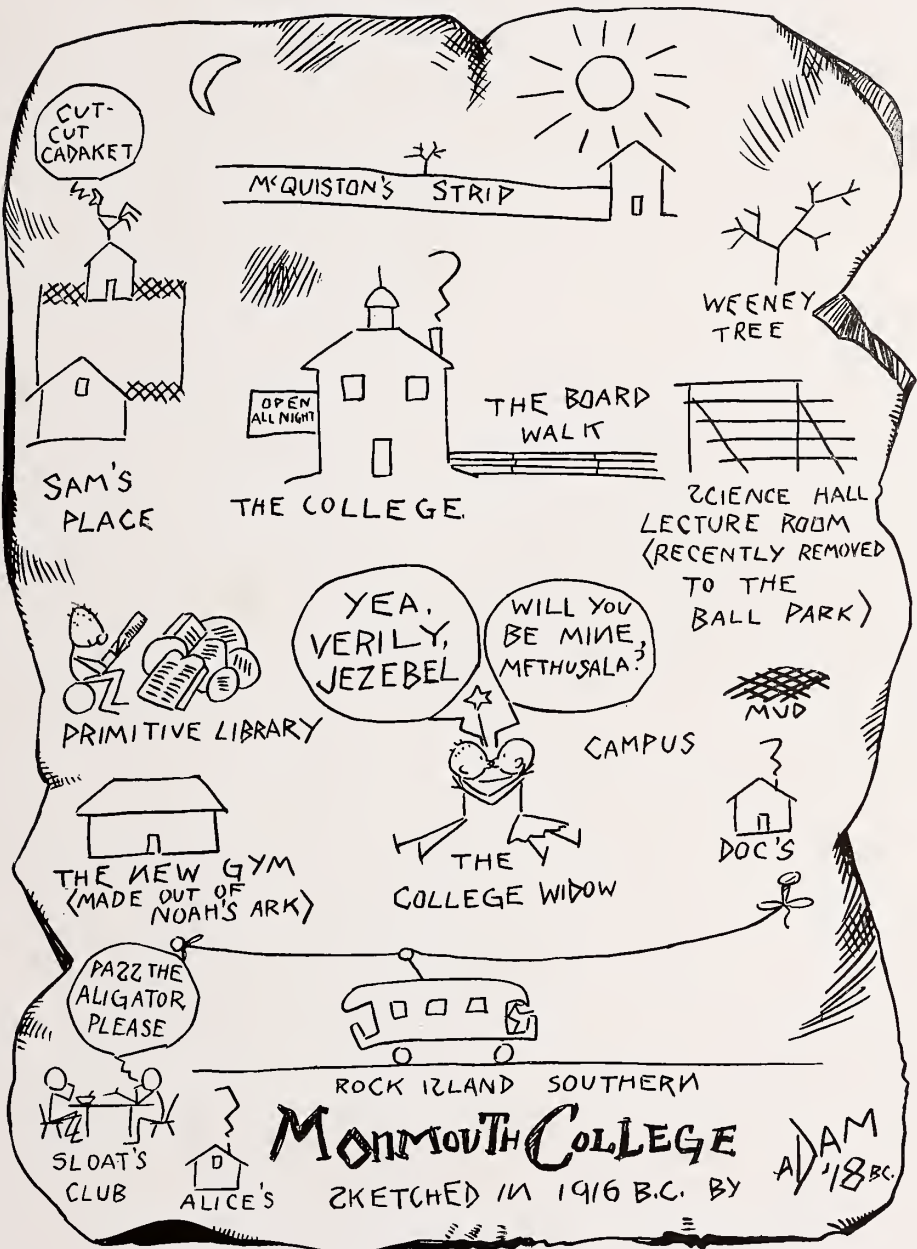 CUT-
CUT
CADAKET
McQUISTON'S STRIP
WEENEY
TREE
OPEN
ALL NIGHT
THE BOARD
WALK
SAM'S
PLACE
THE COLLEGE.
SCIENCE HALL
LECTURE ROOM
(RECENTLY REMOVED
TO THE
BALL PARK)
YEA,
VERILY,
JEZEBEL
WILL YOU
BE MINE,
METHUSALA?
PRIMITIVE LIBRARY
MUD
CAMPUS
THE NEW GYM
(MADE OUT OF
NOAH'S ARK)
THE
COLLEGE WIDOW
DOC'S
PASS THE
ALIGATOR
PLEASE
ROCK ISLAND SOUTHERN
SLOAT'S
CLUB
ALICE'S
MONMOUTH COLLEGE
SKETCHED IN 1916 B.C. BY
ADAM
'18 B.C.